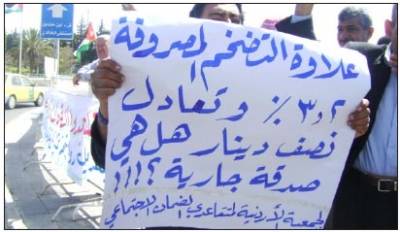 علاوة التضخم المصروفة
٣,٢ ٪ وتعادل
نصف دينار هل هي
صدقة جارية ؟!!!
الجمعية الأردنية لمتقاعدي الضمان الاجتماعي